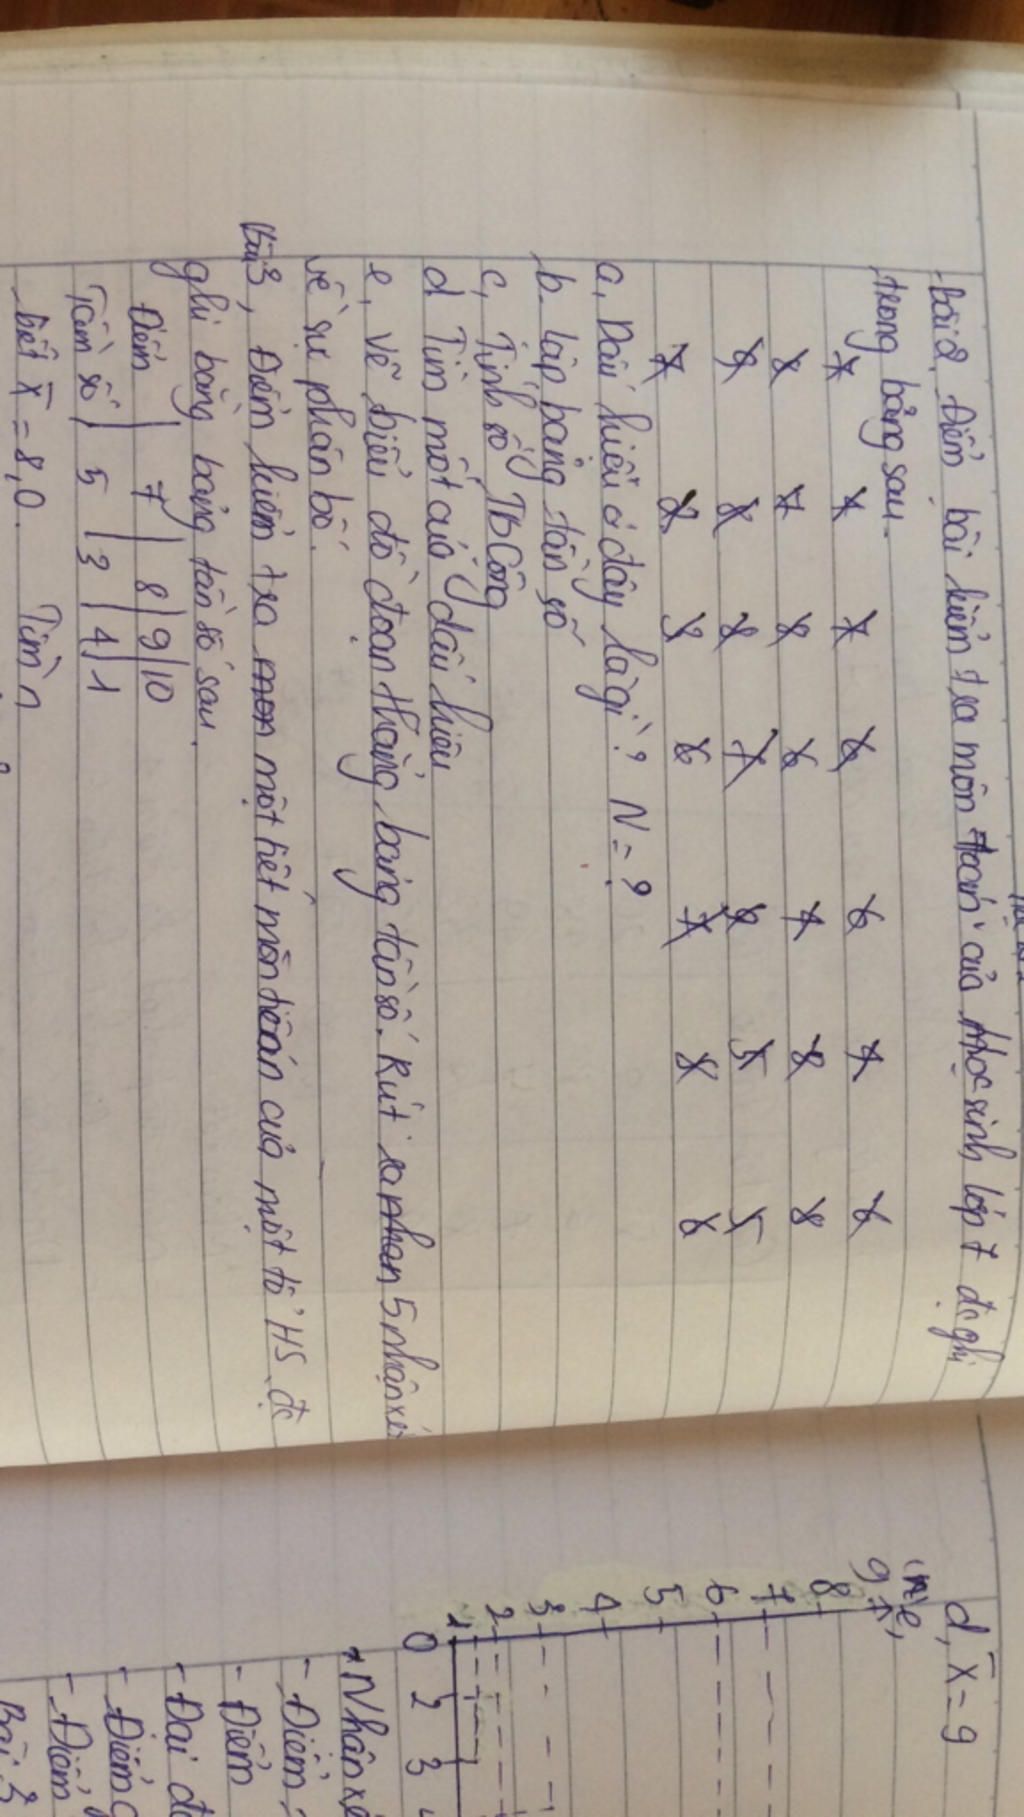 Bài 2, Điểm bài kiểm tra môn toán của học sinh lớp 7 đc ghi
trong bảng sau.
7 7 7 6 6 7 6
7 8 6 7 8 8
8 7 5 5
7 2 9 6 7 8 6
a, Dấu hiệu ở đây là gì? N = ?
b. lập bảng tần số
c, Tính số TB Cộng
d Tìm mốt của dấu hiệu
e, Vẽ biểu đồ đoạn thẳng bảng tần số. Rút ra 5 nhận xét
về sự phân bố.
Bài 3, Điểm kiểm tra một tiết môn toán của một tổ HS đc
ghi bằng bảng tần số sau.
Điểm | 7 | 8 | 9 | 10
Tần số | 5 | 3 | 4 | 1
biết x̄ = 8,0. Tìm n
d, x̄ = 9
e,
(n)
9
8
7
6
5
4
3
2
1
0 2 3
* Nhận xé
- Điểm
- Điểm
- Đai đ
- Điểm
- Điểm
Bài 3